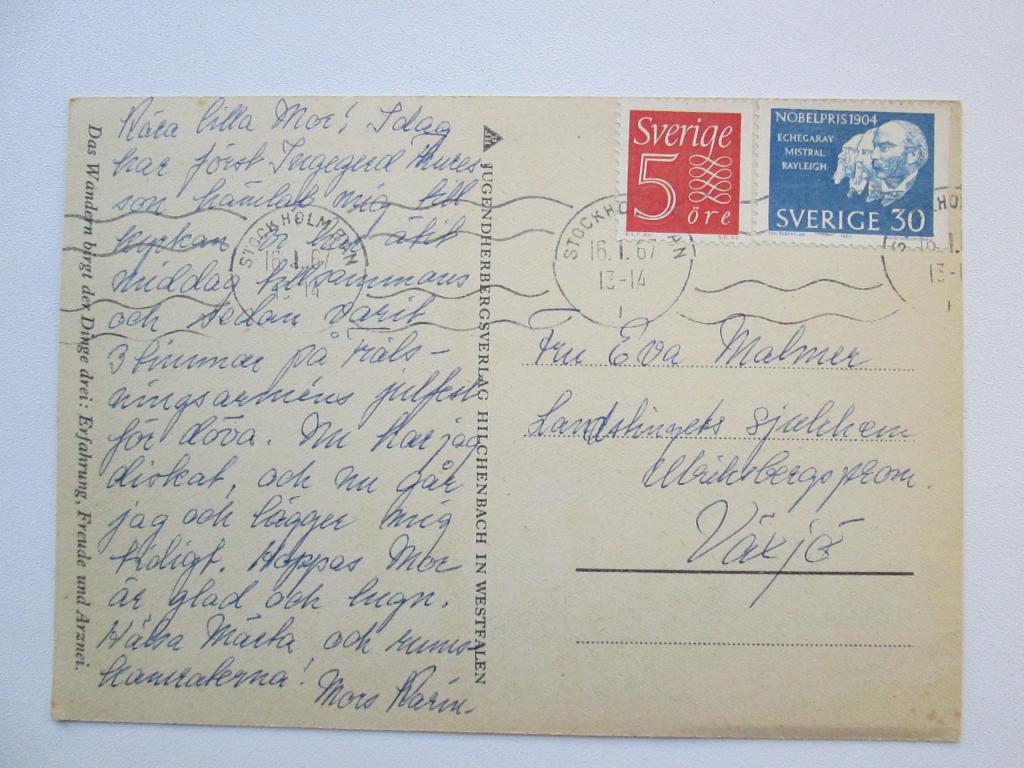 Kära lilla Mor! Idag
har först Ingegerd Thures-
son hämtat mig till
kyrkan, vi har ätit
middag tillsammans
och sedan varit
3 timmar på Fräls-
ningsarméns julfest
för döva. Nu har jag
diskat, och nu går
jag och lägger mig
tidigt. Hoppas Mor
är glad och lugn.
Hälsa Märta och rums-
kamraterna!
Mors Karin.
Das Wandern birgt der Dinge drei: Erfahrung, Freude und Arznei.
JUGENDHERBERGSVERLAG HILCHENBACH IN WESTFALEN
Sverige
5
öre
NOBELPRIS 1904
ECHEGARAY
MISTRAL
RAYLEIGH
SVERIGE 30
STOCKHOLM BAN
16.1.67
13-14
STOCKHO
16.1.67
13-14
1
HO
16.1.
13-
Fru Eva Malmer
Landstingets sjukhem
Ulriksbergsprom.
Växjö